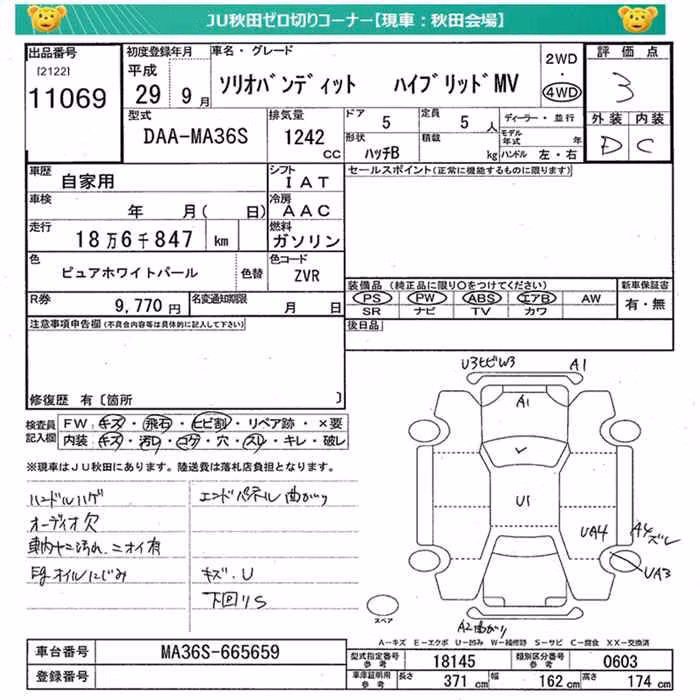 JU秋田ゼロ切りコーナー【現車：秋田会場】
出品番号 初度登録年月 車名・グレード 評価点
[2122]
11069
平成
29 9月
ソリオバンディット ハイブリッドMV
2WD
・
4WD
3
外装 内装
D C
型式 排気量 ドア 定員 ディーラー・並行
DAA-MA36S 1242 CC 5 5人
モデル年式 年
形状 積載
ハッチB kg ハンドル 左・右
車歴 自家用 シフト IAT
セールスポイント(正常に機能するものに限ります)
車検 年 月( 日) 冷房 AAC
走行 18万6千847 km 燃料 ガソリン
色 ピュアホワイトパール 色替 色コード ZVR
装備品(純正品に限り○をつけてください) 新車保証書
PS PW ABS エアB AW 有・無
SR ナビ TV カワ
R券 9,770円 名変通知期限 月 日
後日品
注意事項申告欄(不具合内容等は具体的に記入して下さい)
修復歴 有〔箇所 〕
検査員記入欄
FW:キズ・飛石・ヒビ割・リペア跡・×要
内装:キズ・汚レ・コゲ・穴・スレ・キレ・破レ
※現車はJU秋田にあります。陸送費は落札店負担となります。
ハンドルハゲ エンドパネル曲がり
オーディオ欠
車内ヤニ汚れ、ニオイ有
Egオイルにじみ キズ.U
下回りS
U3ヒビW3 A1
A1
U1
UA4 A4 ズレ
UA3
スペア
A2曲がり
A−キズ E−エクボ U−凹み W−補修跡 S−サビ C−腐食 XX−交換済
車台番号 MA36S-665659
登録番号
型式指定番号 参考 18145 類別区分番号 参考 0603
車庫証明用 参考 長さ 371 cm 幅 162 cm 高さ 174 cm